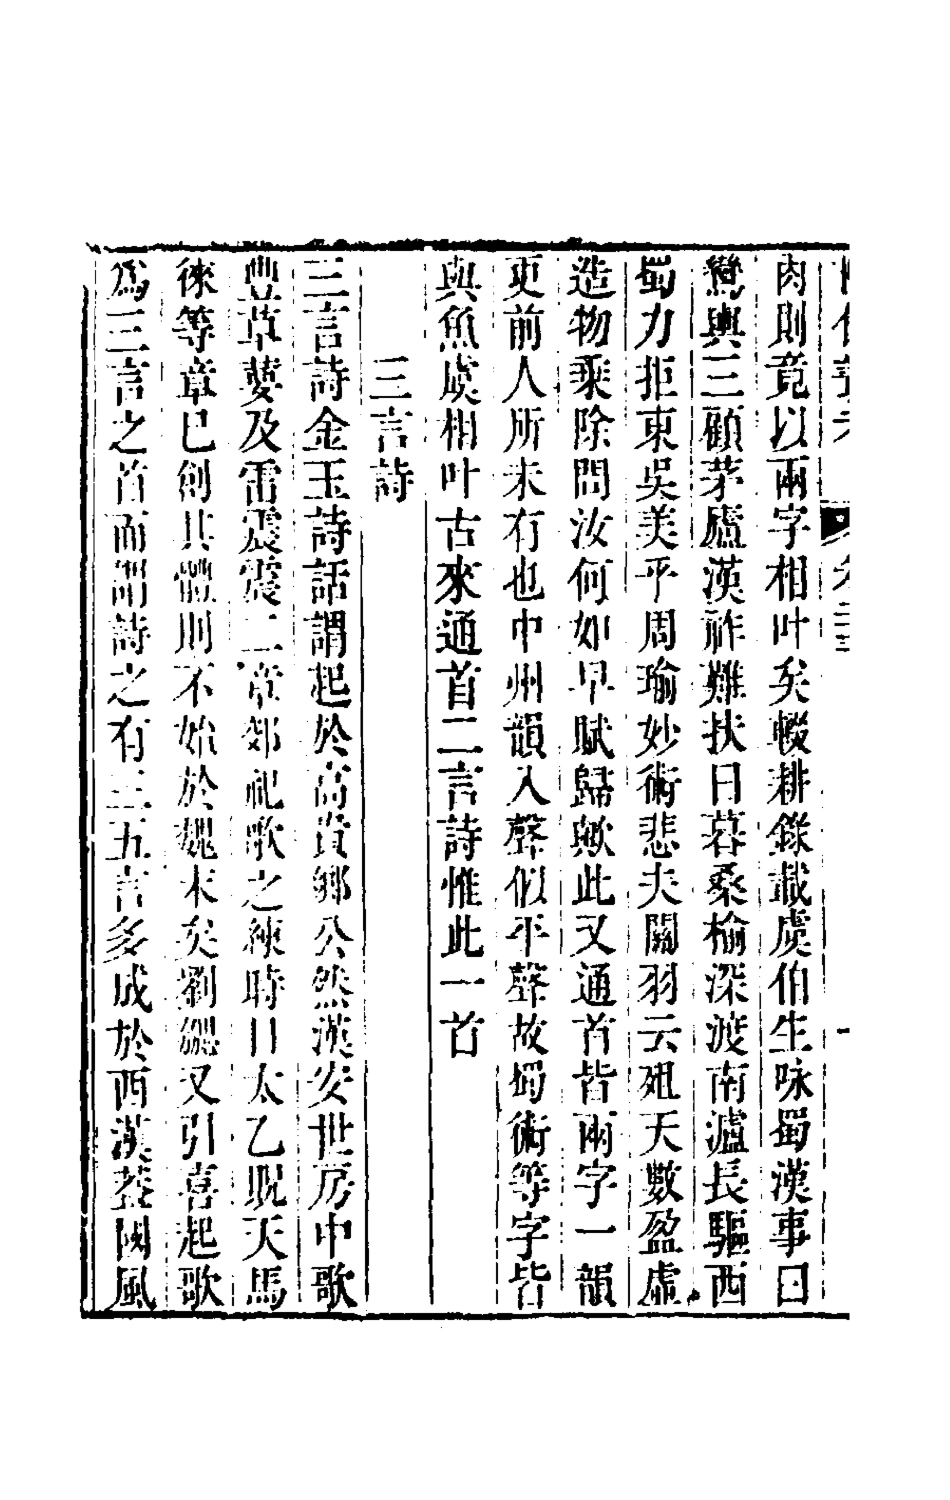 肉則竟以兩字相叶矣輟耕錄載虞伯生咏蜀漢事曰
鸞輿三顧茅廬漢祚難扶日暮桑榆深渡南瀘長驅西
蜀力拒東吳美乎周瑜妙術悲夫關羽云殂天數盈虛
造物乘除問汝何如早賦歸歟此又通首皆兩字一韻
更前人所未有也中州韻入聲似平聲故蜀術等字皆
與魚虞相叶古來通首二言詩惟此一首
三言詩
三言詩金玉詩話謂起於高貴鄉公然漢安世房中歌
豐草葽及雷震震二章郊祀歌之練時日太乙貺天馬
徠等章已創其體則不始於魏末矣劉勰又引喜起歌
爲三言之首而謂詩之有三五言多成於西漢葢國風